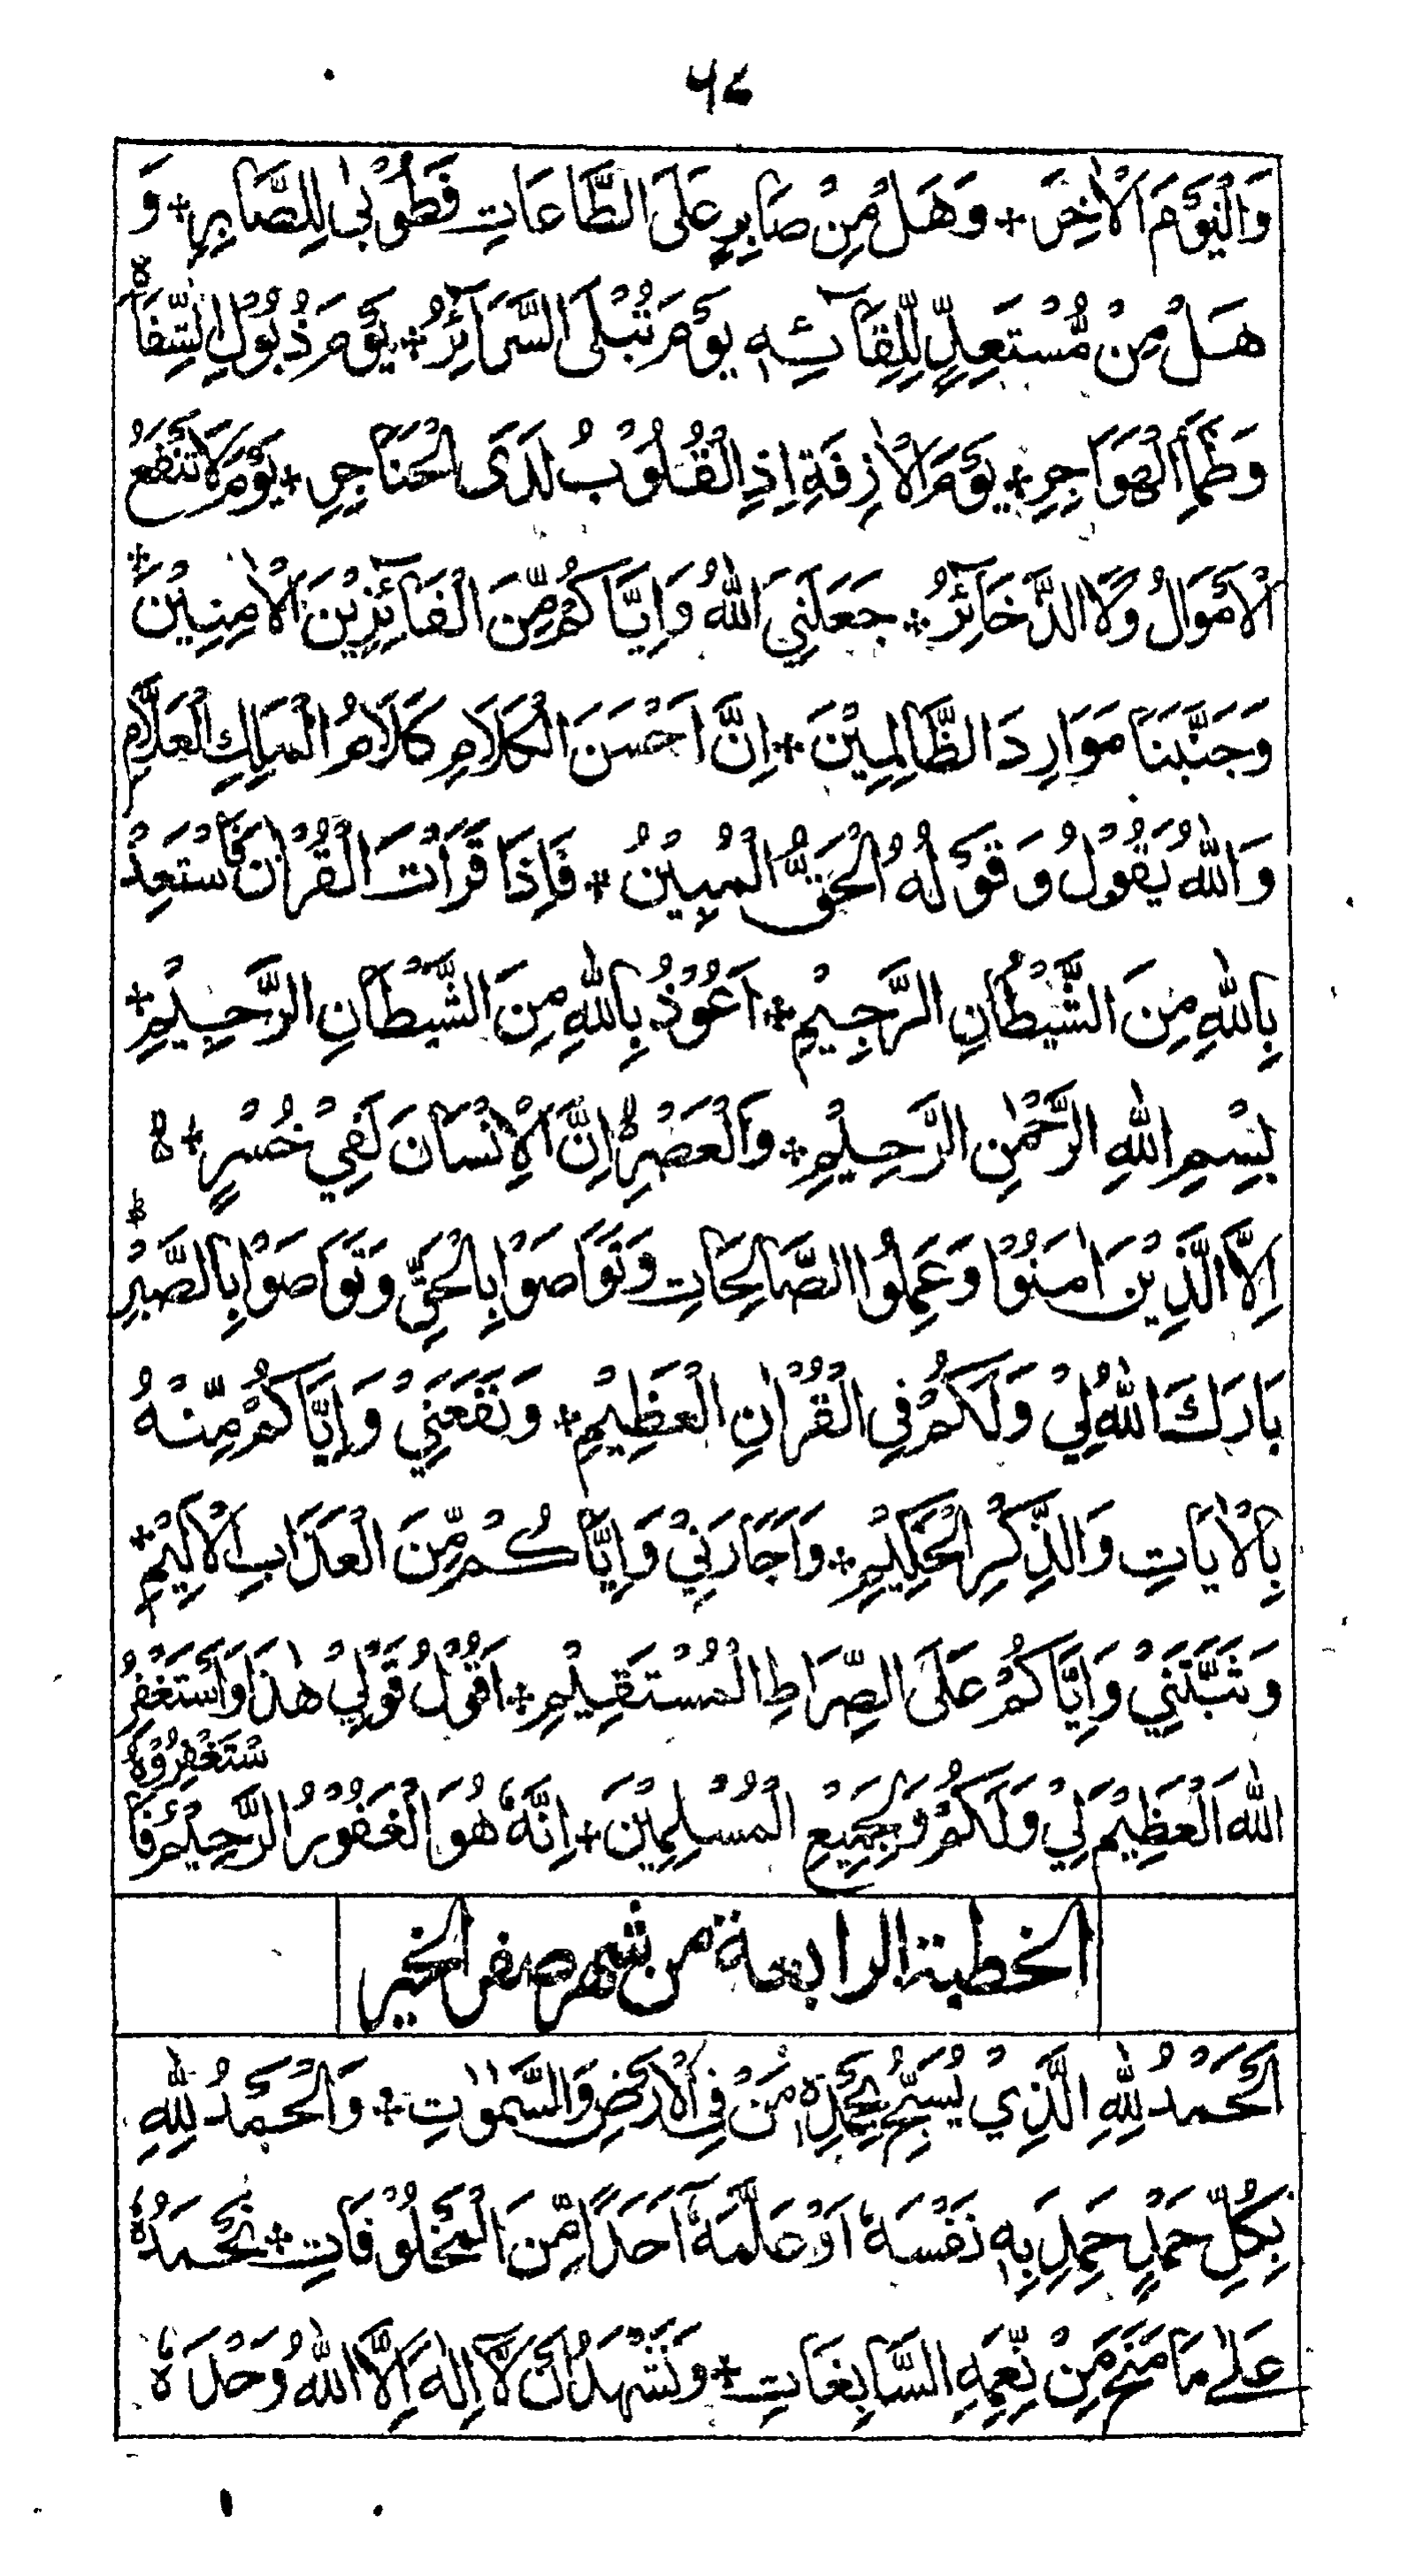 ۶۷
وَالْيَوْمَ الْاٰخِرَ + وَهَلْ مِنْ صَابِرٍ عَلَى الطَّاعَاتِ فَطُوْبٰى لِلصَّابِرِ + وَ
هَلْ مِنْ مُّسْتَعِدٍّ لِّلِقَآئِهٖ يَوْمَ تُبْلَى السَّرَآئِرُ + يَوْمَ ذُبُوْلِ الشِّفَاهِ
وَظَمَأِ الْهَوَاجِرِ + يَوْمَ الْاٰزِفَةِ اِذِ الْقُلُوْبُ لَدَى الْحَنَاجِرِ + يَوْمَ لَا تَنْفَعُ
الْاَمْوَالُ وَلَا الذَّخَآئِرُ + جَعَلَنِيَ اللهُ وَاِيَّاكُمْ مِّنَ الْفَآئِزِيْنَ الْاٰمِنِيْنَ +
وَجَنَّبَنَا مَوَارِدَ الظَّالِمِيْنَ + اِنَّ اَحْسَنَ الْكَلَامِ كَلَامُ الْمَلِكِ الْعَلَّامِ
وَاللهُ يَقُوْلُ وَقَوْلُهُ الْحَقُّ الْمُبِيْنُ + فَاِذَا قَرَاْتَ الْقُرْاٰنَ فَاسْتَعِذْ
بِاللهِ مِنَ الشَّيْطَانِ الرَّجِيْمِ + اَعُوْذُ بِاللهِ مِنَ الشَّيْطَانِ الرَّجِيْمِ +
بِسْمِ اللهِ الرَّحْمٰنِ الرَّحِيْمِ + وَالْعَصْرِ اِنَّ الْاِنْسَانَ لَفِيْ خُسْرٍ +
اِلَّا الَّذِيْنَ اٰمَنُوْا وَعَمِلُوا الصَّالِحَاتِ وَتَوَاصَوْا بِالْحَقِّ وَتَوَاصَوْا بِالصَّبْرِ +
بَارَكَ اللهُ لِيْ وَلَكُمْ فِي الْقُرْاٰنِ الْعَظِيْمِ + وَنَفَعَنِيْ وَاِيَّاكُمْ مِّنْهُ
بِالْاٰيَاتِ وَالذِّكْرِ الْحَكِيْمِ + وَاَجَارَنِيْ وَاِيَّاكُمْ مِّنَ الْعَذَابِ الْاَلِيْمِ +
وَثَبَّتَنِيْ وَاِيَّاكُمْ عَلَى الصِّرَاطِ الْمُسْتَقِيْمِ + اَقُوْلُ قَوْلِيْ هٰذَا وَاَسْتَغْفِرُ
اللهَ الْعَظِيْمَ لِيْ وَلَكُمْ وَلِجَمِيْعِ الْمُسْلِمِيْنَ + اِنَّهٗ هُوَ الْغَفُوْرُ الرَّحِيْمُ فَاسْتَغْفِرُوْهُ
الخطبة الرابعة من شهر صفر الخير
اَلْحَمْدُ لِلّٰهِ الَّذِيْ يُسَبِّحُ بِحَمْدِهٖ مَنْ فِي الْاَرْضِ وَالسَّمٰوٰتِ + وَالْحَمْدُ لِلّٰهِ
بِكُلِّ حَمْدٍ حَمِدَ بِهٖ نَفْسَهٗ اَوْ عَلَّمَهٗ اَحَدًا مِّنَ الْمَخْلُوْقَاتِ + نَحْمَدُهٗ
عَلٰى مَا مَنَحَ مِنْ نِّعَمِهِ السَّابِغَاتِ + وَنَشْهَدُ اَنْ لَّآ اِلٰهَ اِلَّا اللهُ وَحْدَهٗ